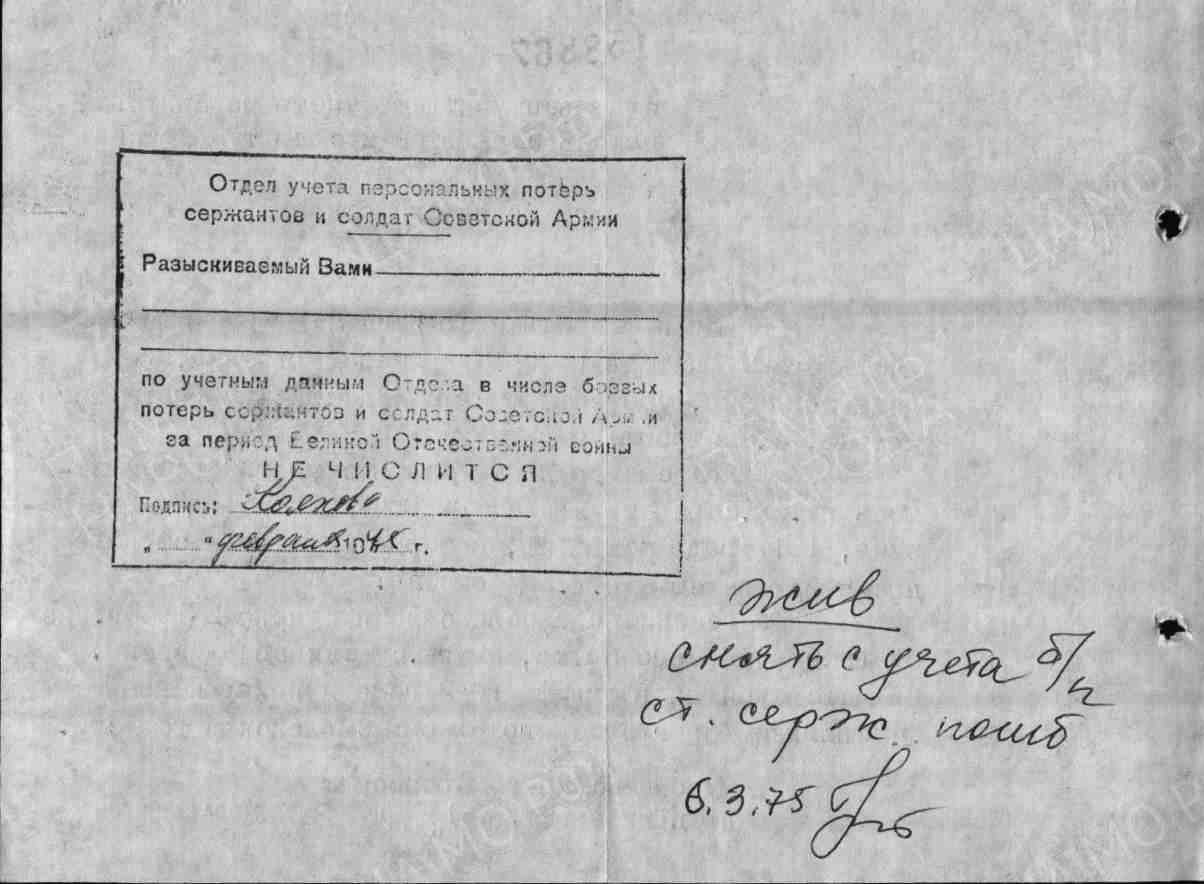 Отдел учета персональных потерь
сержантов и солдат Советской Армии
Разыскиваемый Вами
по учетным данным Отдела в числе боевых
потерь сержантов и солдат Советской Армии
за период Великой Отечественной войны
НЕ ЧИСЛИТСЯ
Подпись:
" " февраля 197 г.
жив
снять с учета б/п
ст. серж. погиб
6.3.75